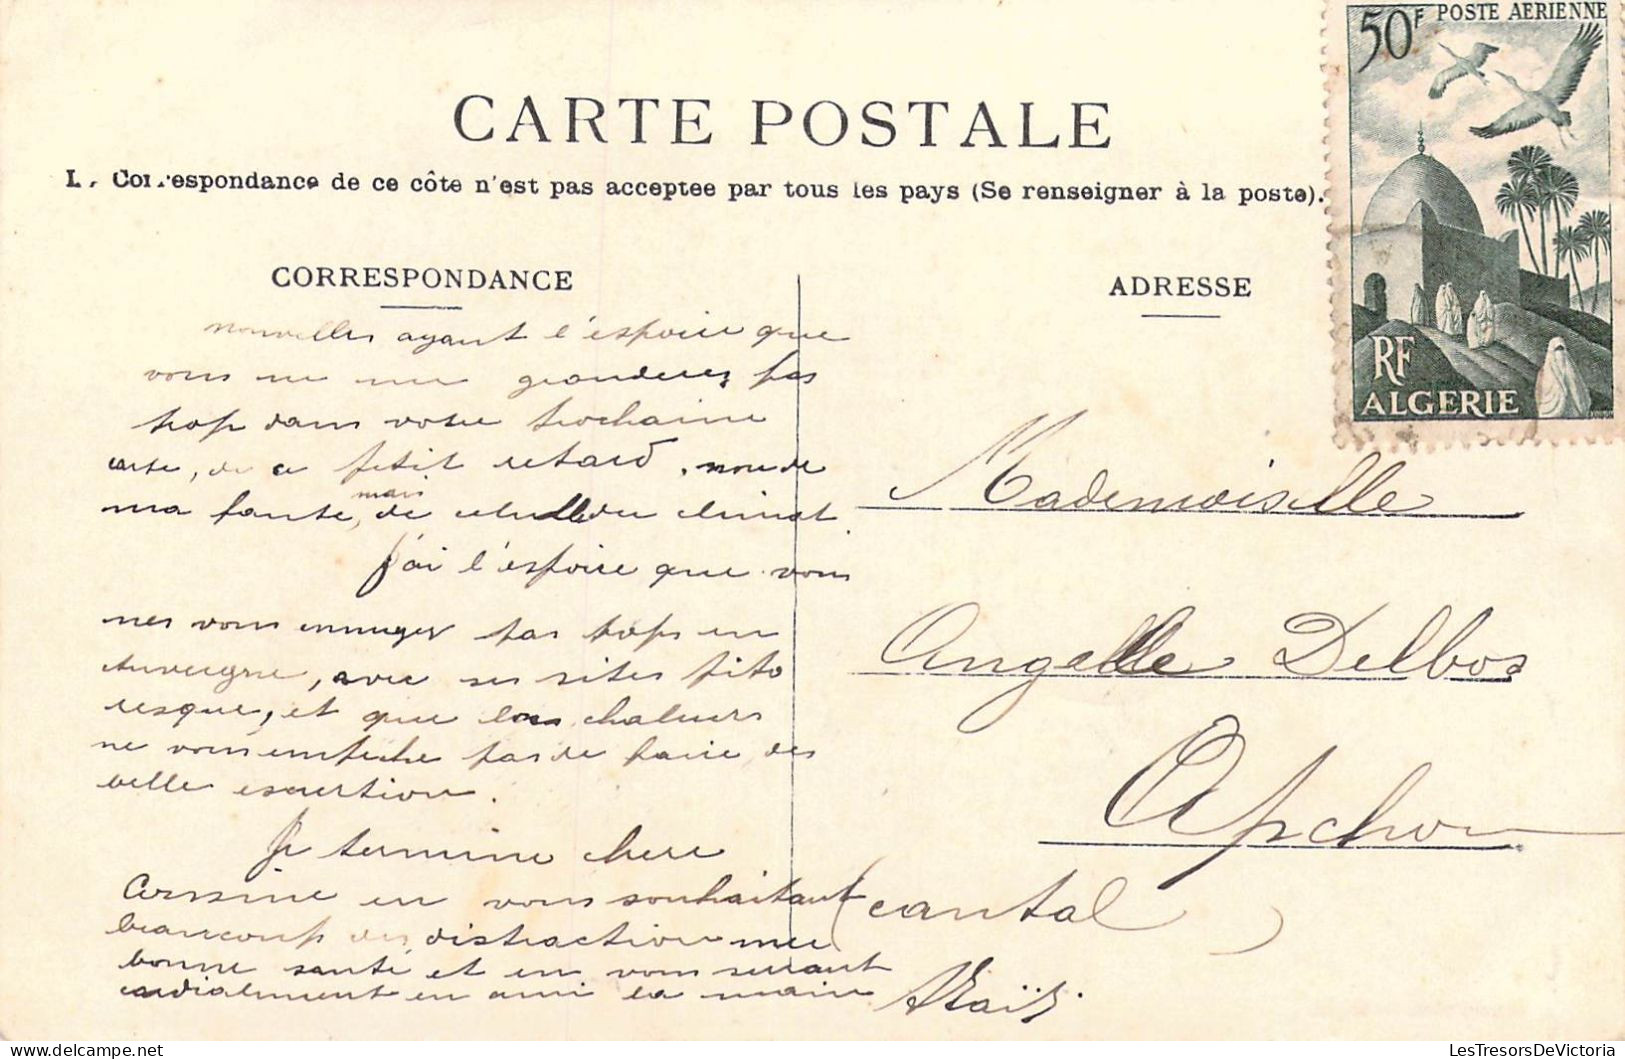 50F POSTE AERIENNE
CARTE POSTALE
La Correspondance de ce côte n'est pas acceptee par tous les pays (Se renseigner à la poste).
CORRESPONDANCE
ADRESSE
RF
ALGERIE
nouvelles ayant l'espoire que
vous ne me gronderez pas
trop dans votre prochaine
carte, de ce petit retard, non de
ma faute, mais de celulle du climat.
J'ai l'espoire que vous
nes vous ennuyer pas trops en
Auvergne, avec ses sites pito
resque, et que les chaluers
ne vous empeche pas de faire des
belle escurtion.
Je termine chere
Cousine en vous souhaitant
beaucoup des distraction une
bonne santé et en vous serrant
cordialement en ami la main
Mademoiselle
Angelle Delbos
Apchon
(cantal)
LesTresorsDeVictoria